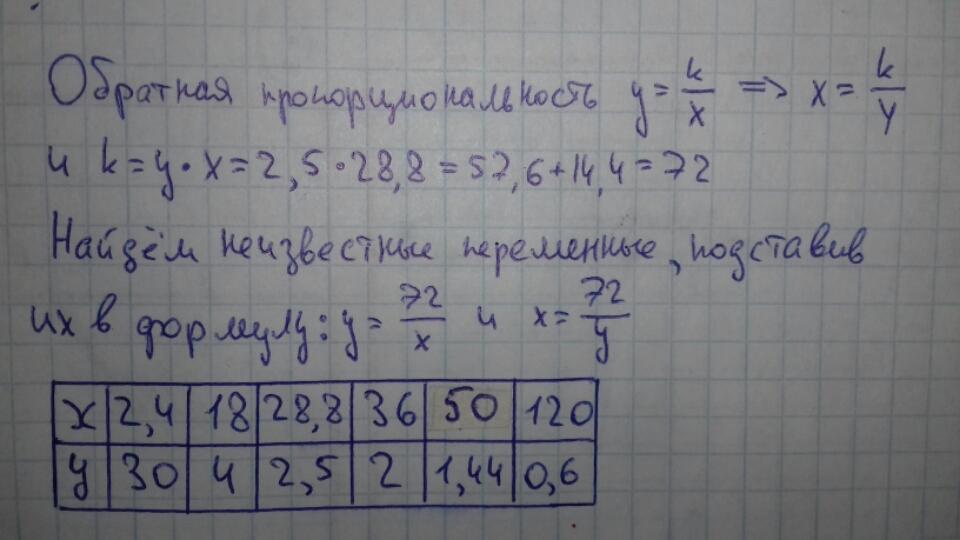 Обратная пропорциональность y = k/x => x = k/y
и k = y · x = 2,5 · 28,8 = 57,6 + 14,4 = 72
Найдём неизвестные переменные, подставив
их в формулу: y = 72/x и x = 72/y
x 2,4 18 28,8 36 50 120
y 30 4 2,5 2 1,44 0,6